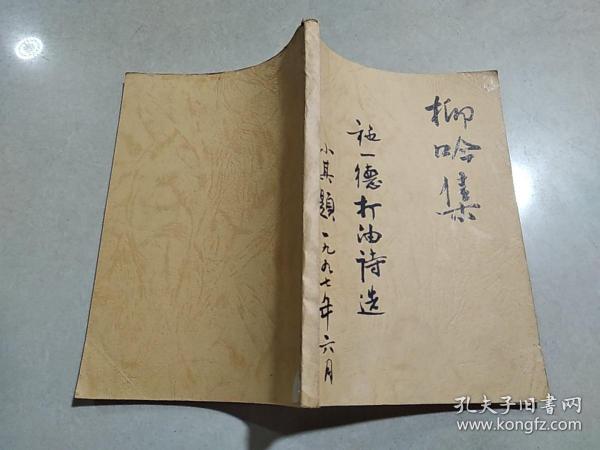 柳吟集
一德打油诗选
小其题 一九九七年六月
孔夫子旧书网
www.kongfz.com